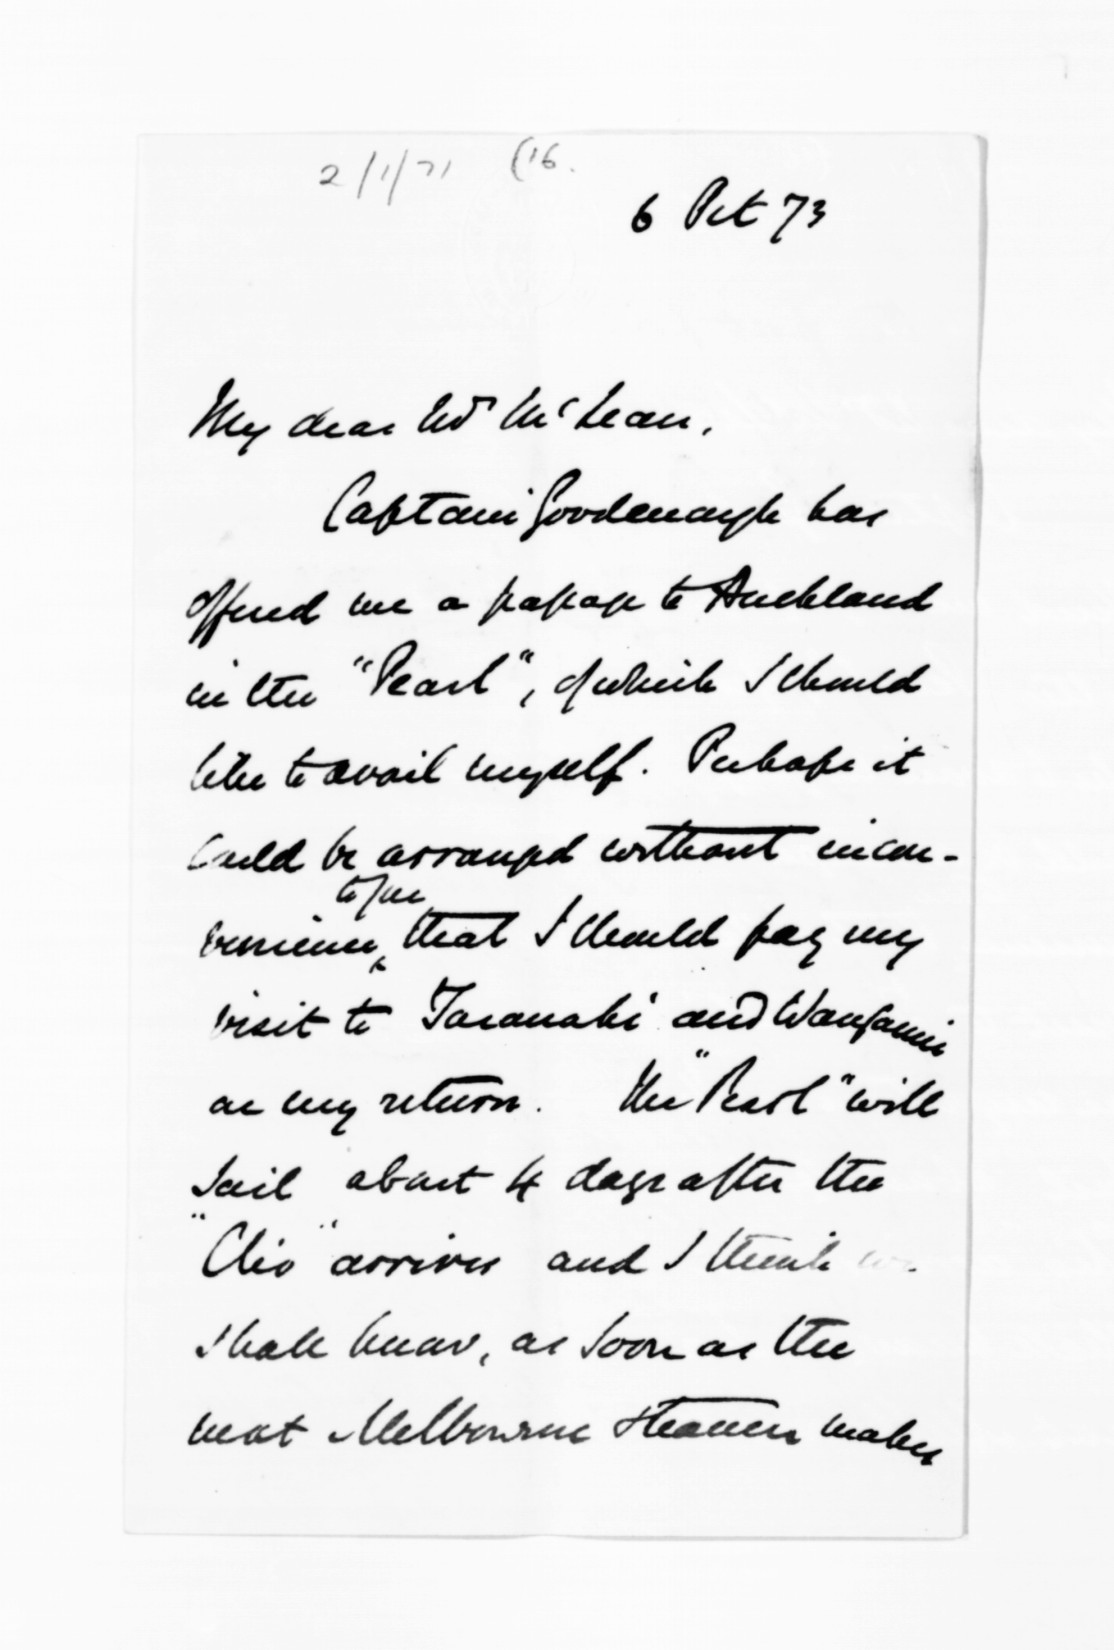 2/1/71 (16.
6 Oct 73
My dear Mr McLean,
Captain Goodenough has
offered me a passage to Auckland
in the "Pearl", of which I should
like to avail myself. Perhaps it
could be arranged without incon-
to you
venience, that I should pay my
visit to Taranaki and Wanganui
on my return. The "Pearl" will
sail about 4 days after the
"Clio" arrives and I think we
shall know, as soon as the
next Melbourne steamer makes